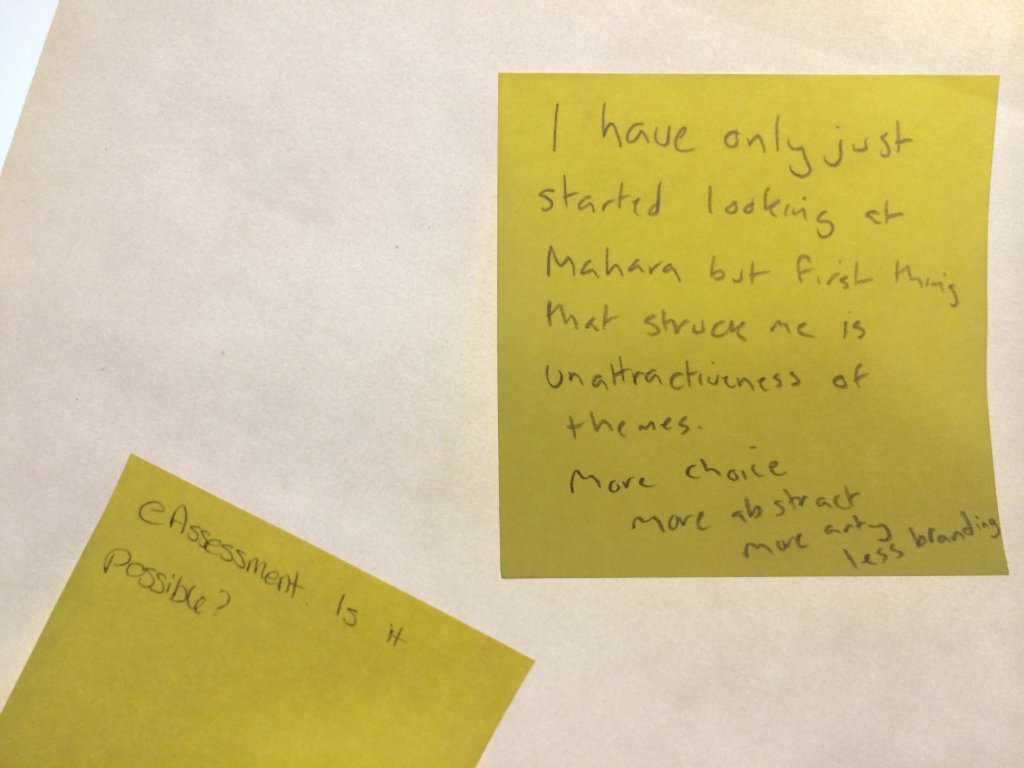 I have only just
started looking at
Mahara but first thing
that struck me is
unattractiveness of
themes.
More choice
more abstract
more arty
less branding
eAssessment. Is it
Possible?